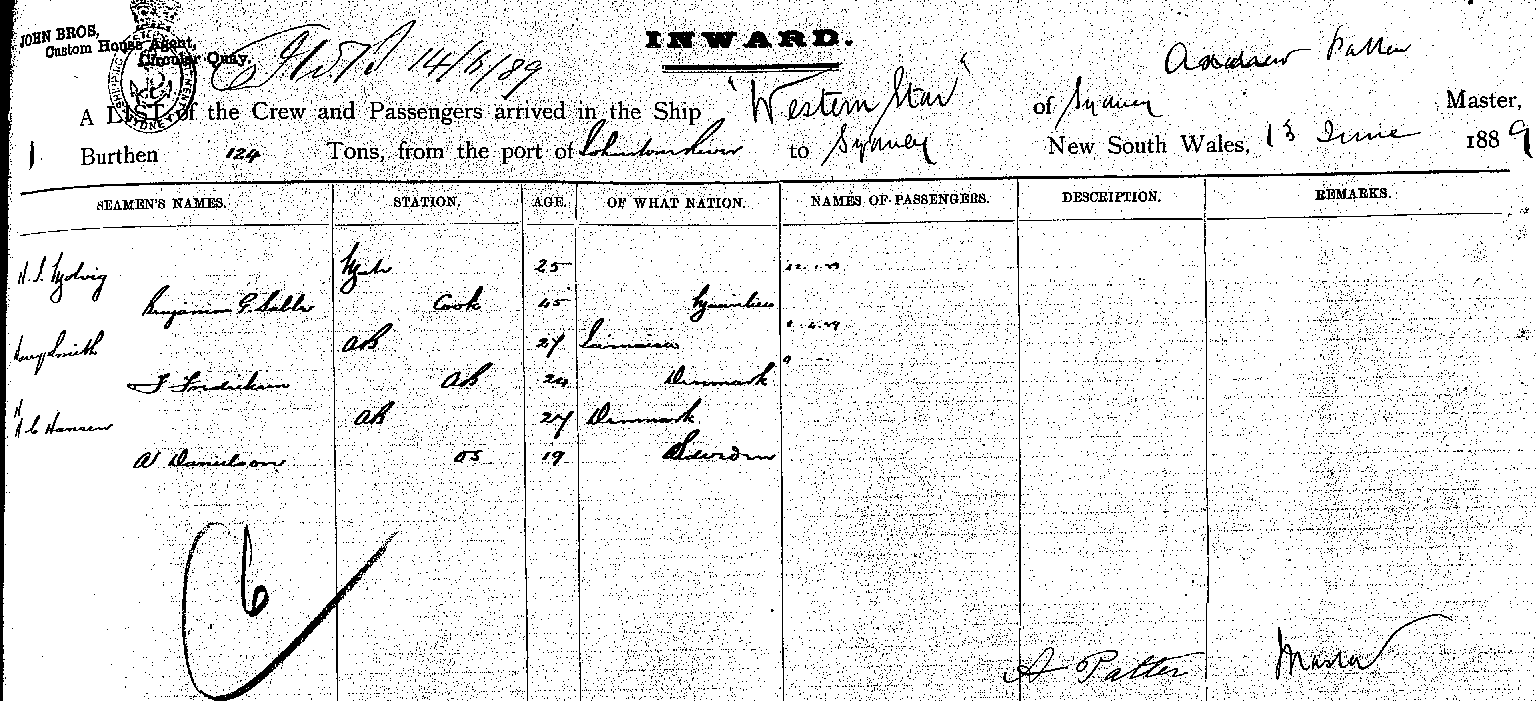 JOHN BROS,
Custom House Agent,
Circular Quay.
14/6/89
INWARD.
Andrew Patter
A LIST of the Crew and Passengers arrived in the Ship "Western Star" of Sydney Master,
1 Burthen 124 Tons, from the port of to Sydney New South Wales, 13 June 1889
SEAMEN'S NAMES. STATION. AGE. OF WHAT NATION. NAMES OF PASSENGERS. DESCRIPTION. REMARKS.
25
Benjamin G. Cook 45
Smith AB 27 Jamaica
AB 24 Denmark
H C Hansen AB 27 Denmark
Danielson OS 19 Sweden
6
A Patter Master